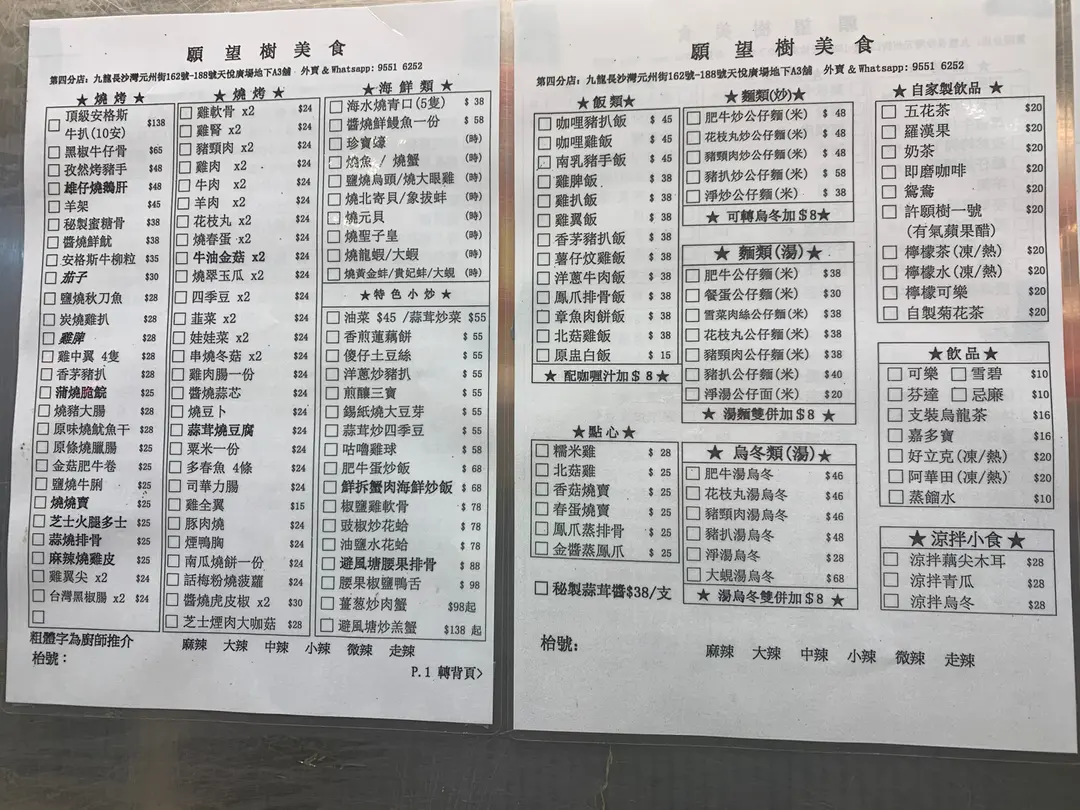 願望樹美食
第四分店：九龍長沙灣元州街162號-188號天悅廣場地下A3舖 外賣 & Whatsapp: 9551 6252
★ 燒烤 ★
頂級安格斯
牛扒(10安) $138
黑椒牛仔骨 $65
孜然烤豬手 $48
雄仔燒鵝肝 $48
羊架 $45
秘製蜜糖骨 $38
醬燒鮮魷 $38
安格斯牛柳粒 $35
茄子 $30
鹽燒秋刀魚 $28
炭燒雞扒 $28
雞髀 $28
雞中翼 4隻 $28
香茅豬扒 $25
蒲燒脆鯇 $25
燒豬大腸 $25
原味燒魷魚干 $28
原條燒臘腸 $25
金菇肥牛卷 $25
鹽燒牛脷 $25
燒燒賣 $25
芝士火腿多士 $25
蒜燒排骨 $25
麻辣燒雞皮 $25
雞翼尖 x2 $24
台灣黑椒腸 x2 $24
粗體字為廚師推介
枱號：
★ 燒烤 ★
雞軟骨 x2 $24
雞腎 x2 $24
豬頸肉 x2 $24
雞肉 x2 $24
牛肉 x2 $24
羊肉 x2 $24
花枝丸 x2 $24
燒春蛋 x2 $24
牛油金菇 x2 $24
燒翠玉瓜 x2 $24
四季豆 x2 $24
韮菜 x2 $24
娃娃菜 x2 $24
串燒冬菇 x2 $24
雞肉腸一份 $24
醬燒蒜芯 $24
燒豆卜 $24
蒜茸燒豆腐 $24
粟米一份 $24
多春魚 4條 $24
司華力腸 $24
雞全翼 $15
豚肉燒 $24
煙鴨胸 $24
南瓜燒餅一份 $24
話梅粉燒菠蘿 $24
醬燒虎皮椒 x2 $30
芝士煙肉大咖菇 $28
★海鮮類★
海水燒青口(5隻) $ 38
醬燒鮮鰻魚一份 $ 58
珍寶蠔 (時)
燒魚 / 燒蟹 (時)
鹽燒烏頭/燒大眼雞 (時)
燒北寄貝/象拔蚌 (時)
燒元貝 (時)
燒聖子皇 (時)
燒龍蝦/大蝦 (時)
燒黃金蚌/貴妃蚌/大蜆 (時)
★特色小炒★
油菜 $45 /蒜茸炒菜 $55
香煎蓮藕餅 $ 55
傻仔土豆絲 $ 55
洋蔥炒豬扒 $ 55
煎釀三寶 $ 55
錫紙燒大豆芽 $ 55
蒜茸炒四季豆 $ 55
咕嚕雞球 $ 58
肥牛蛋炒飯 $ 68
鮮拆蟹肉海鮮炒飯 $ 68
椒鹽雞軟骨 $ 78
豉椒炒花蛤 $ 78
油鹽水花蛤 $ 78
避風塘腰果排骨 $ 88
腰果椒鹽鴨舌 $ 98
薑葱炒肉蟹 $98起
避風塘炒羔蟹 $138 起
麻辣 大辣 中辣 小辣 微辣 走辣
P.1 轉背頁>
願望樹美食
第四分店：九龍長沙灣元州街162號-188號天悅廣場地下A3舖 外賣 & Whatsapp: 9551 6252
★飯類★
咖哩豬扒飯 $ 45
咖哩雞飯 $ 45
南乳豬手飯 $ 45
雞脾飯 $ 38
雞扒飯 $ 38
雞翼飯 $ 38
香茅豬扒飯 $ 38
薯仔炆雞飯 $ 38
洋蔥牛肉飯 $ 38
鳳爪排骨飯 $ 38
章魚肉餅飯 $ 38
北菇雞飯 $ 38
原盅白飯 $ 15
★ 配咖喱汁加 $ 8★
★點心★
糯米雞 $ 28
北菇雞 $ 25
香菇燒賣 $ 25
春蛋燒賣 $ 25
鳳爪蒸排骨 $ 25
金醬蒸鳳爪 $ 25
秘製蒜茸醬$38/支
枱號:
★麵類(炒)★
肥牛炒公仔麵(米) $ 48
花枝丸炒公仔麵(米) $ 48
豬頸肉炒公仔麵(米) $ 48
豬扒炒公仔麵(米) $ 58
淨炒公仔麵(米) $ 38
★ 可轉烏冬加$8★
★ 麵類(湯)★
肥牛公仔麵(米) $38
餐蛋公仔麵(米) $30
雪菜肉絲公仔麵(米) $38
花枝丸公仔麵(米) $38
豬頸肉公仔麵(米) $38
豬扒公仔麵(米) $40
淨湯公仔面(米) $20
★ 湯麵雙併加$8 ★
★ 烏冬類(湯)★
肥牛湯烏冬 $46
花枝丸湯烏冬 $46
豬頸肉湯烏冬 $46
豬扒湯烏冬 $48
淨湯烏冬 $28
大蜆湯烏冬 $68
★ 湯烏冬雙併加$8 ★
麻辣 大辣 中辣 小辣 微辣 走辣
★自家製飲品★
五花茶 $20
羅漢果 $20
奶茶 $20
即磨咖啡 $20
鴛鴦 $20
許願樹一號 $20
(有氣蘋果醋)
檸檬茶(凍/熱) $20
檸檬水(凍/熱) $20
檸檬可樂 $20
自製菊花茶 $20
★飲品★
可樂 雪碧 $10
芬達 忌廉 $10
支裝烏龍茶 $16
嘉多寶 $16
好立克(凍/熱) $20
阿華田(凍/熱) $20
蒸餾水 $10
★涼拌小食★
涼拌藕尖木耳 $28
涼拌青瓜 $28
涼拌烏冬 $28